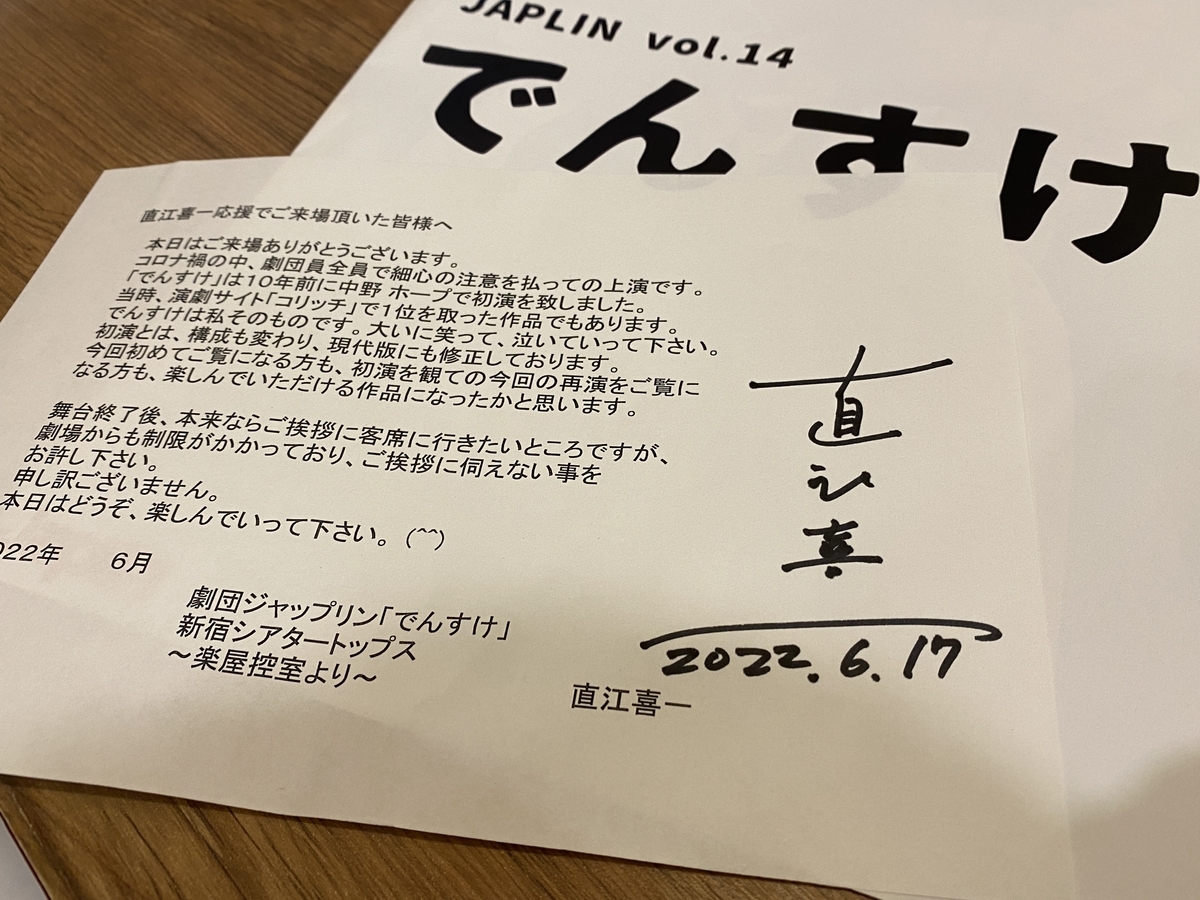 JAPLIN vol.14
でんすけ
直江喜一応援でご来場頂いた皆様へ
本日はご来場ありがとうございます。
コロナ禍の中、劇団員全員で細心の注意を払っての上演です。
「でんすけ」は10年前に中野 ホープで初演を致しました。
当時、演劇サイト「コリッチ」で1位を取った作品でもあります。
でんすけは私そのものです。大いに笑って、泣いていって下さい。
初演とは、構成も変わり、現代版にも修正しております。
今回初めてご覧になる方も、初演を観ての今回の再演をご覧に
なる方も、楽しんでいただける作品になったかと思います。
舞台終了後、本来ならご挨拶に客席に行きたいところですが、
劇場からも制限がかかっており、ご挨拶に伺えない事を
お許し下さい。
申し訳ございません。
本日はどうぞ、楽しんでいって下さい。(^^)
022年 6月
劇団ジャップリン「でんすけ」
新宿シアタートップス
～楽屋控室より～
直江喜一
直江喜一
2022.6.17